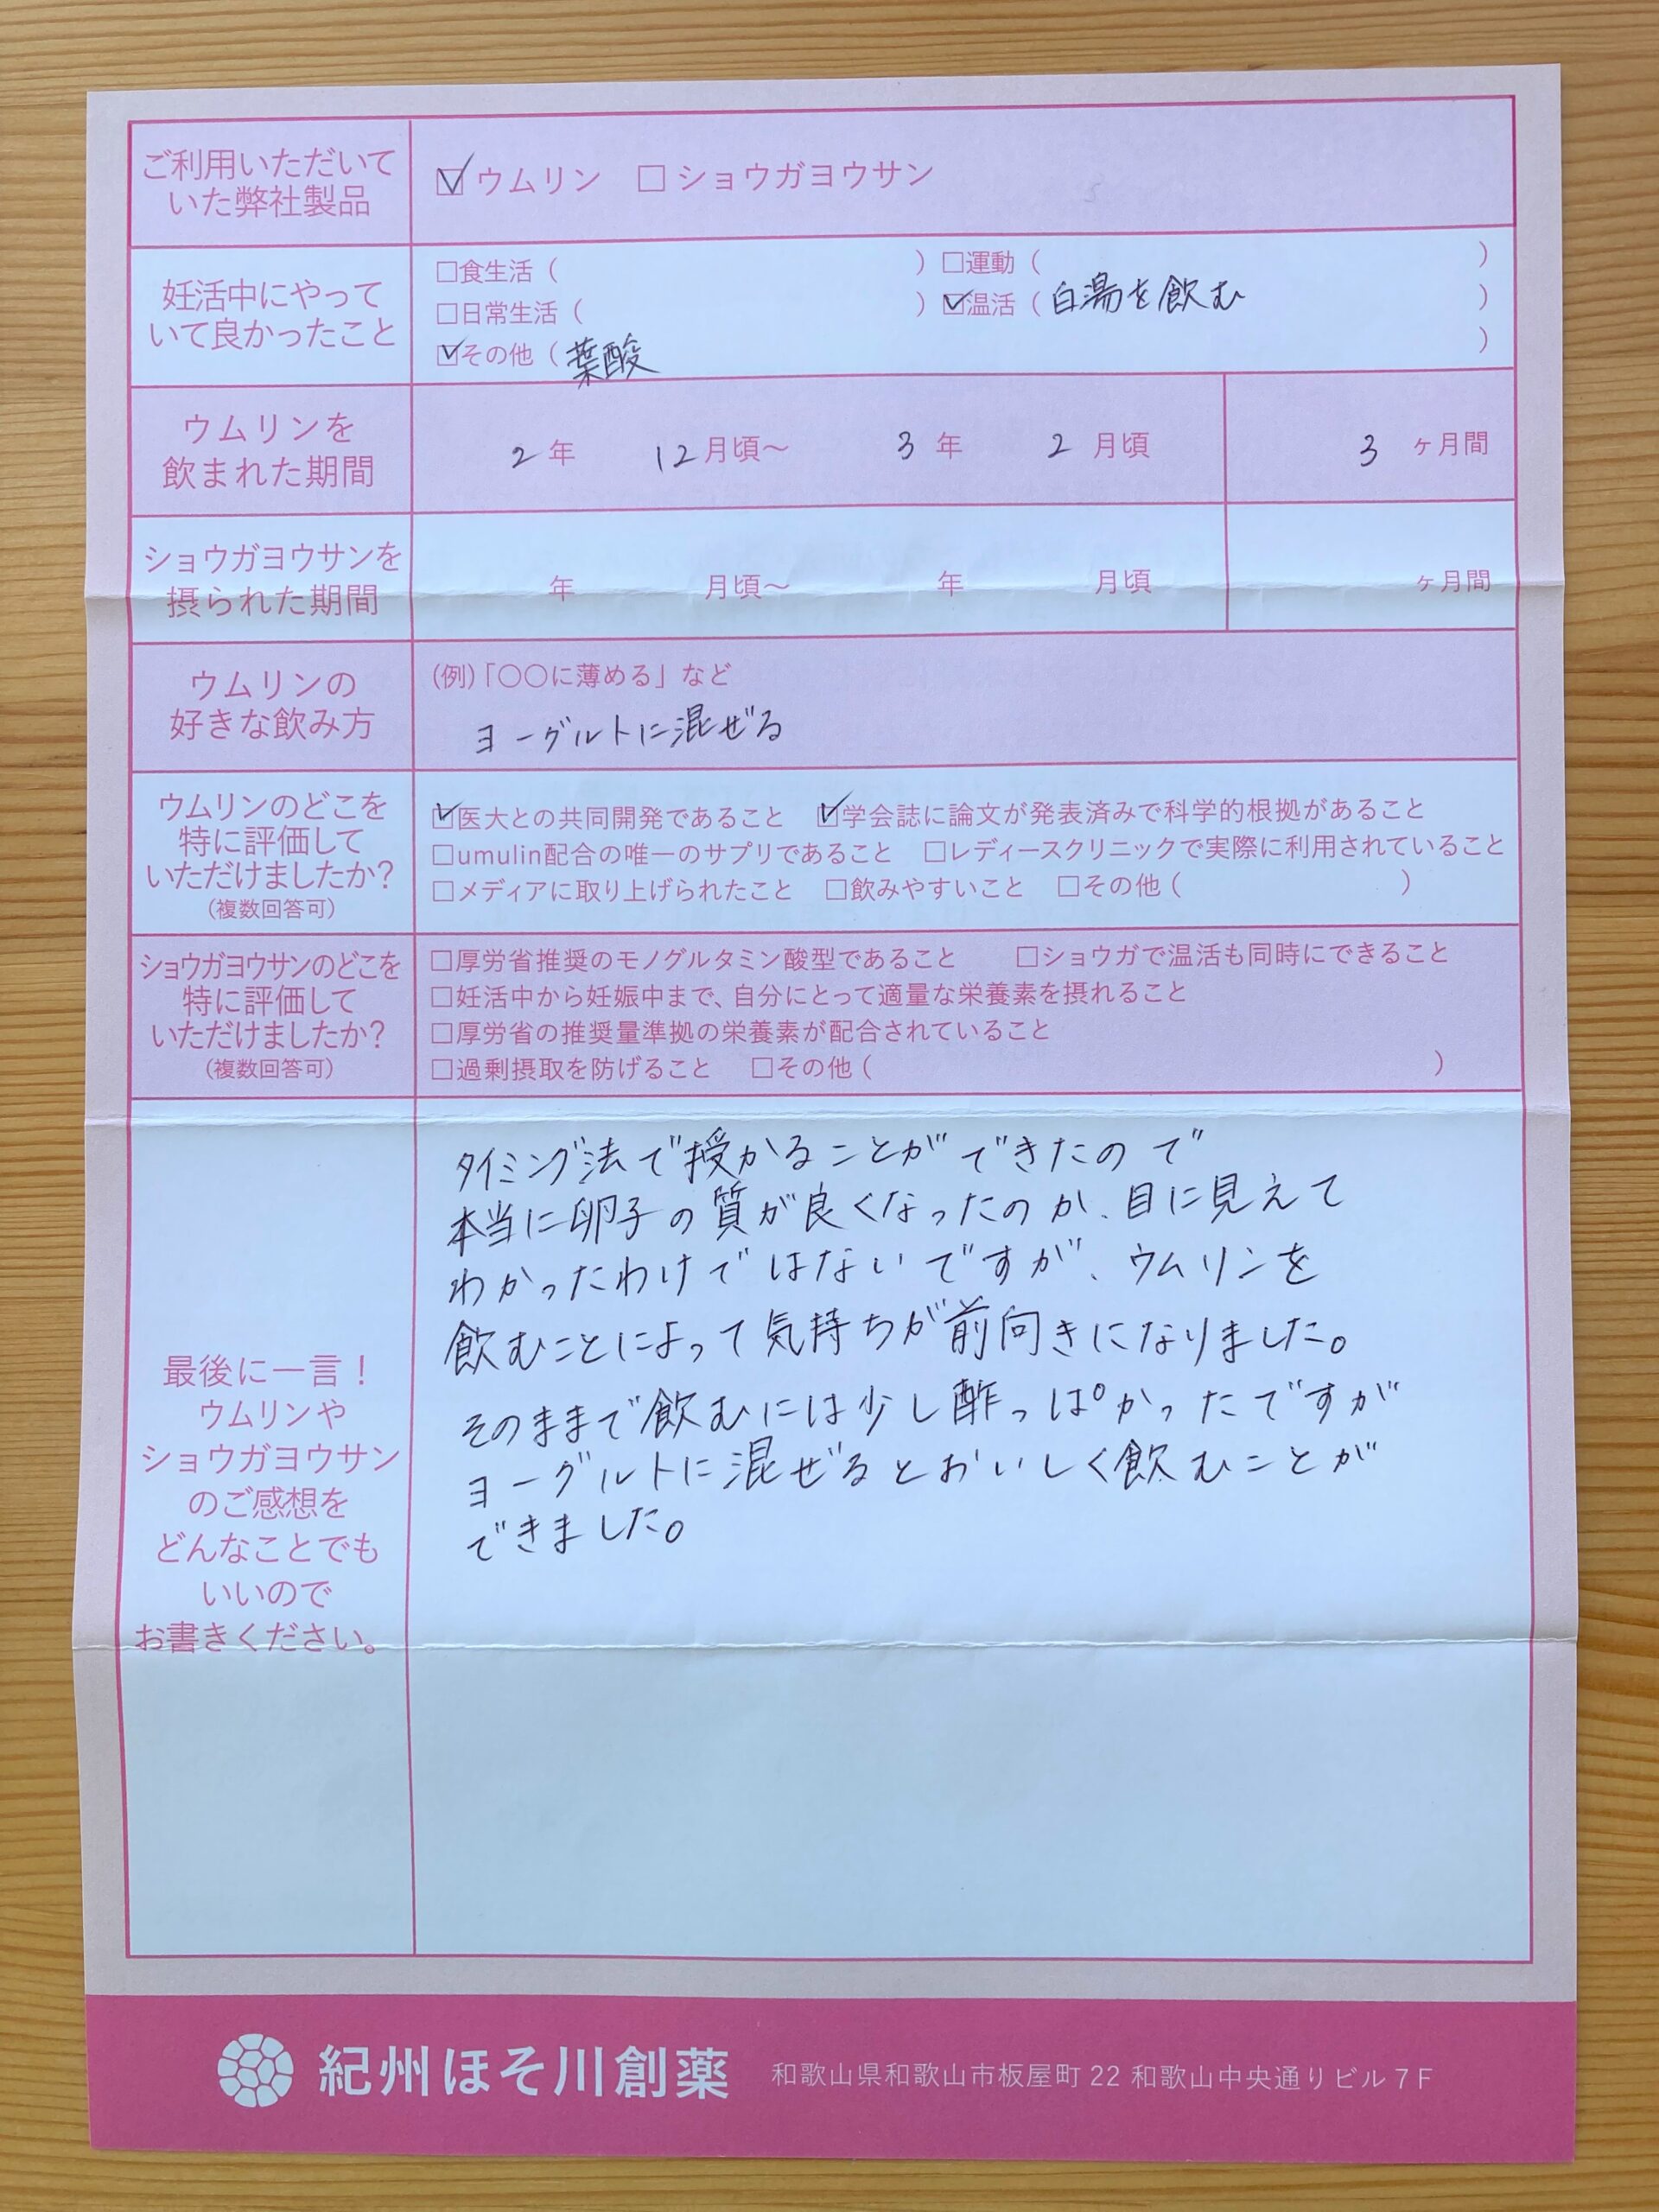 ご利用いただいて
いた弊社製品
☑ウムリン □ショウガヨウサン
妊活中にやって
いて良かったこと
□食生活（ ）□運動（ ）
□日常生活（ ）☑温活（白湯を飲む ）
☑その他（葉酸 ）
ウムリンを
飲まれた期間
2年 12月頃〜 3年 2月頃 3ヶ月間
ショウガヨウサンを
摂られた期間
年 月頃〜 年 月頃 ヶ月間
ウムリンの
好きな飲み方
(例)「〇〇に薄める」など
ヨーグルトに混ぜる
ウムリンのどこを
特に評価して
いただけましたか?
(複数回答可)
☑医大との共同開発であること ☑学会誌に論文が発表済みで科学的根拠があること
□umulin配合の唯一のサプリであること □レディースクリニックで実際に利用されていること
□メディアに取り上げられたこと □飲みやすいこと □その他（ ）
ショウガヨウサンのどこを
特に評価して
いただけましたか?
(複数回答可)
□厚労省推奨のモノグルタミン酸型であること □ショウガで温活も同時にできること
□妊活中から妊娠中まで、自分にとって適量な栄養素を摂れること
□厚労省の推奨量準拠の栄養素が配合されていること
□過剰摂取を防げること □その他（ ）
最後に一言！
ウムリンや
ショウガヨウサン
のご感想を
どんなことでも
いいので
お書きください。
タイミング法で授かることができたので
本当に卵子の質が良くなったのか、目に見えて
わかったわけではないですが、ウムリンを
飲むことによって気持ちが前向きになりました。
そのままで飲むには少し酢っぱかったですが
ヨーグルトに混ぜるとおいしく飲むことが
できました。
紀州ほそ川創薬 和歌山県和歌山市板屋町22 和歌山中央通りビル7F